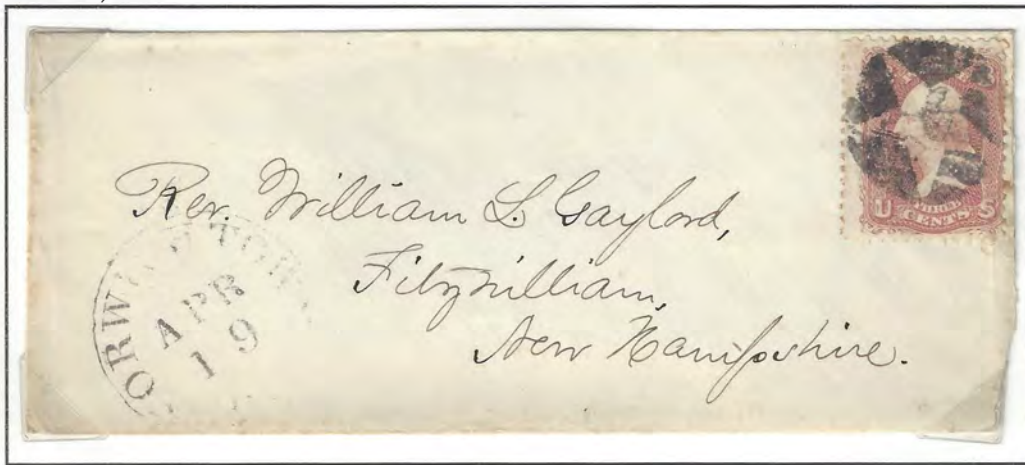 Rev. William L. Gaylord,
Fitzwilliam,
New Hampshire.
APR
19
U S
CENTS